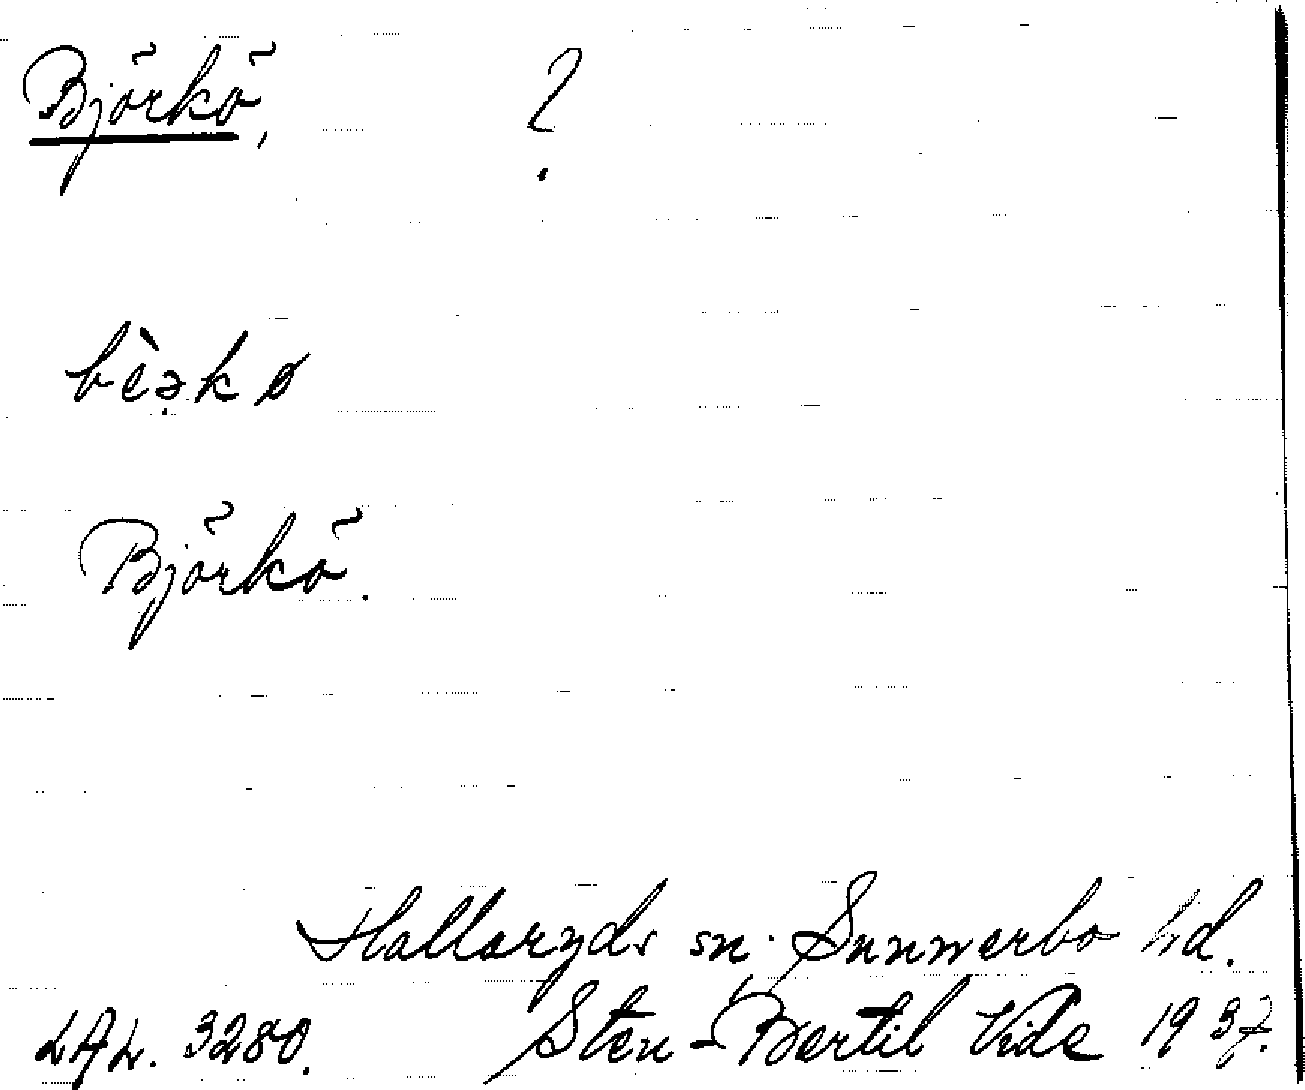 Björkö, ?
bèәkø
Björkö.
Hallaryds sn. Sunnerbo hd.
LAL. 3280. Sten-Bertil Vide 1937.